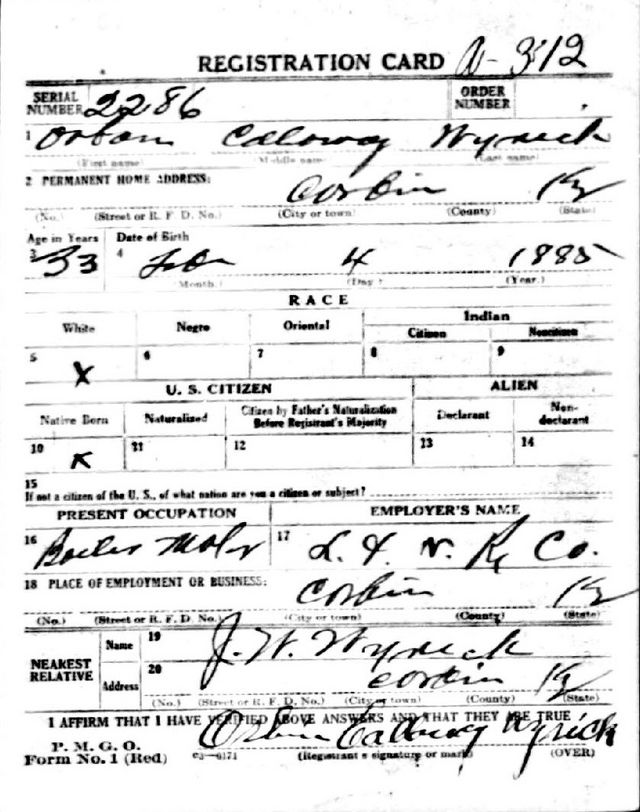 REGISTRATION CARD
SERIAL NUMBER 2286 ORDER NUMBER
1 Orban Caloway Wyrick
(First name) (Middle name) (Last name)
2 PERMANENT HOME ADDRESS: Corbin Ky
(No.) (Street or R. F. D. No.) (City or town) (County) (State)
Age in Years Date of Birth
3 33 4 Feb 4 1885
(Month.) (Day.) (Year.)
RACE
White Negro Oriental Indian
Citizen Noncitizen
5 X 6 7 8 9
U. S. CITIZEN ALIEN
Native Born Naturalized Citizen by Father's Naturalization Before Registrant's Majority Declarant Non-declarant
10 X 11 12 13 14
15
If not a citizen of the U. S., of what nation are you a citizen or subject?
PRESENT OCCUPATION EMPLOYER'S NAME
16 Boiler 17 L. & N. Co.
18 PLACE OF EMPLOYMENT OR BUSINESS: Corbin Ky
(No.) (Street or R. F. D. No.) (City or town) (County) (State)
NEAREST RELATIVE Name 19 J. W. Wyrick
Address 20 Corbin Ky
(No.) (Street or R. F. D. No.) (City or town) (County) (State)
I AFFIRM THAT I HAVE VERIFIED ABOVE ANSWERS AND THAT THEY ARE TRUE
P. M. G. O.
Form No. 1 (Red) Calloway Wyrick
(Registrant's signature or mark) (OVER)